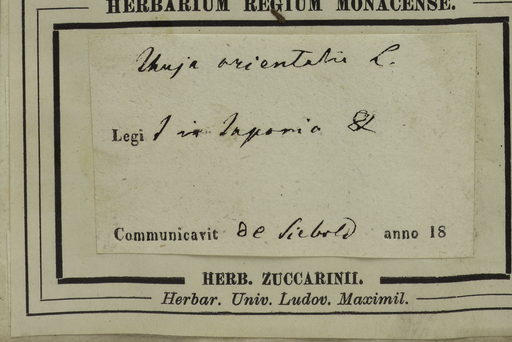 HERBARIUM REGIUM MONACENSE.
Thuja orientalis L.
Legi in Japonia
Communicavit de Siebold anno 18
HERB. ZUCCARINII.
Herbar. Univ. Ludov. Maximil.